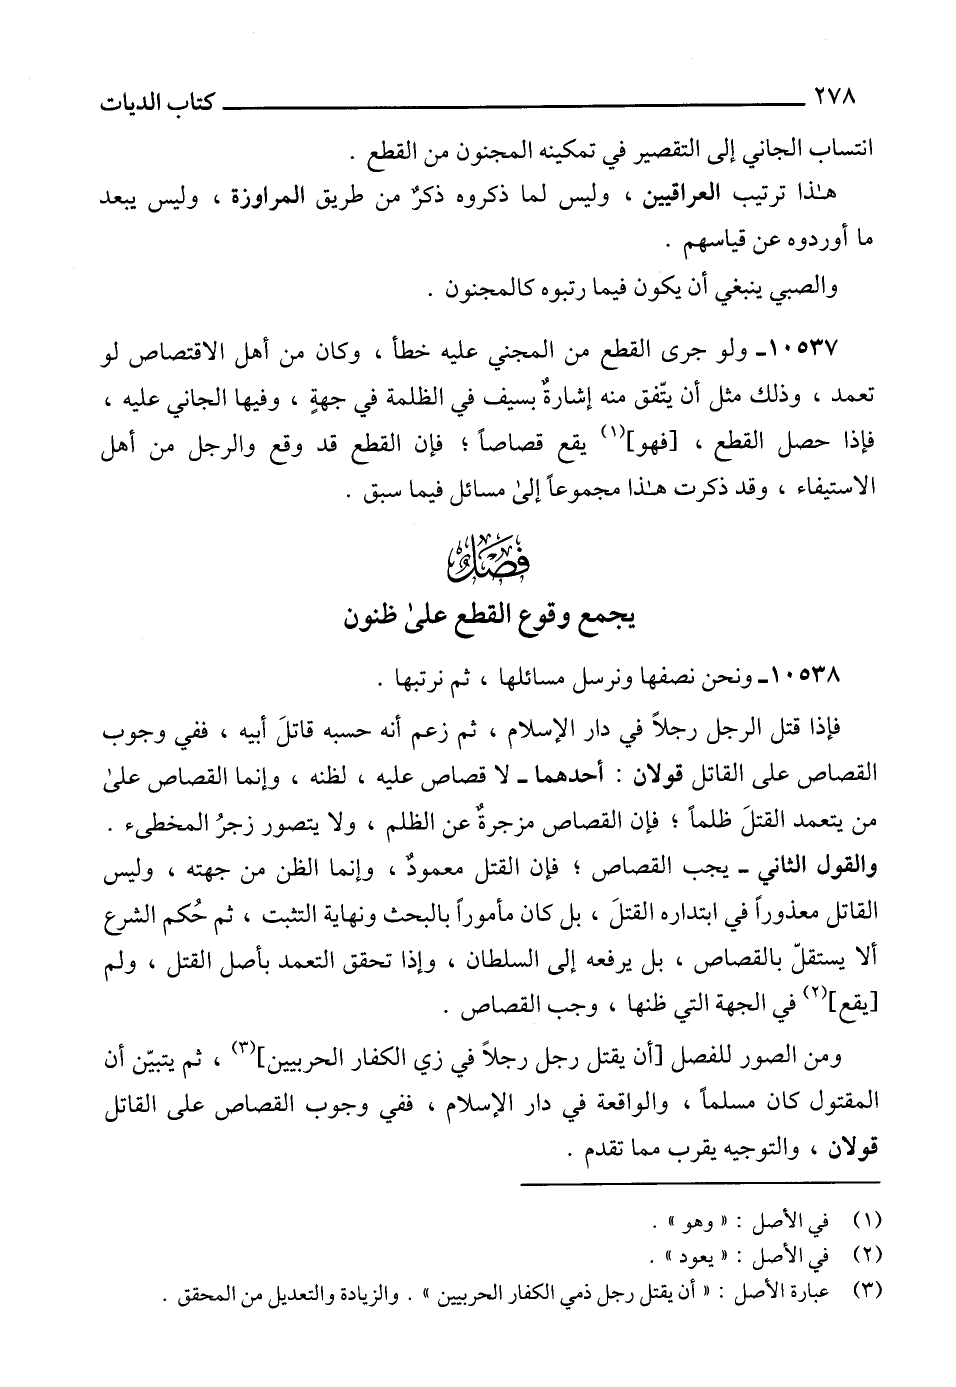 ٢٧٨ كتاب الديات
انتساب الجاني إلى التقصير في تمكينه المجنون من القطع .
هـٰذا ترتيب العراقيين ، وليس لما ذكروه ذكرٌ من طريق المراوزة ، وليس يبعد
ما أوردوه عن قياسهم .
والصبي ينبغي أن يكون فيما رتبوه كالمجنون .
١٠٥٣٧ـ ولو جرى القطع من المجني عليه خطأ ، وكان من أهل الاقتصاص لو
تعمد ، وذلك مثل أن يتّفق منه إشارةٌ بسيف في الظلمة في جهةٍ ، وفيها الجاني عليه ،
فإذا حصل القطع ، [فهو](١) يقع قصاصاً ؛ فإن القطع قد وقع والرجل من أهل
الاستيفاء ، وقد ذكرت هـٰذا مجموعاً إلىٰ مسائل فيما سبق .
فصل
يجمع وقوع القطع علىٰ ظنون
١٠٥٣٨ـ ونحن نصفها ونرسل مسائلها ، ثم نرتبها .
فإذا قتل الرجل رجلاً في دار الإسلام ، ثم زعم أنه حسبه قاتلَ أبيه ، ففي وجوب
القصاص على القاتل قولان : أحدهما ـ لا قصاص عليه ، لظنه ، وإنما القصاص علىٰ
من يتعمد القتلَ ظلماً ؛ فإن القصاص مزجرةٌ عن الظلم ، ولا يتصور زجرُ المخطىء .
والقول الثاني ـ يجب القصاص ؛ فإن القتل معمودٌ ، وإنما الظن من جهته ، وليس
القاتل معذوراً في ابتداره القتلَ ، بل كان مأموراً بالبحث ونهاية التثبت ، ثم حُكم الشرع
ألا يستقلّ بالقصاص ، بل يرفعه إلى السلطان ، وإذا تحقق التعمد بأصل القتل ، ولم
[يقع](٢) في الجهة التي ظنها ، وجب القصاص .
ومن الصور للفصل [أن يقتل رجل رجلاً في زي الكفار الحربيين](٣) ، ثم يتبيّن أن
المقتول كان مسلماً ، والواقعة في دار الإسلام ، ففي وجوب القصاص على القاتل
قولان ، والتوجيه يقرب مما تقدم .
(١) في الأصل : « وهو » .
(٢) في الأصل : « يعود » .
(٣) عبارة الأصل : « أن يقتل رجل ذمي الكفار الحربيين » . والزيادة والتعديل من المحقق .